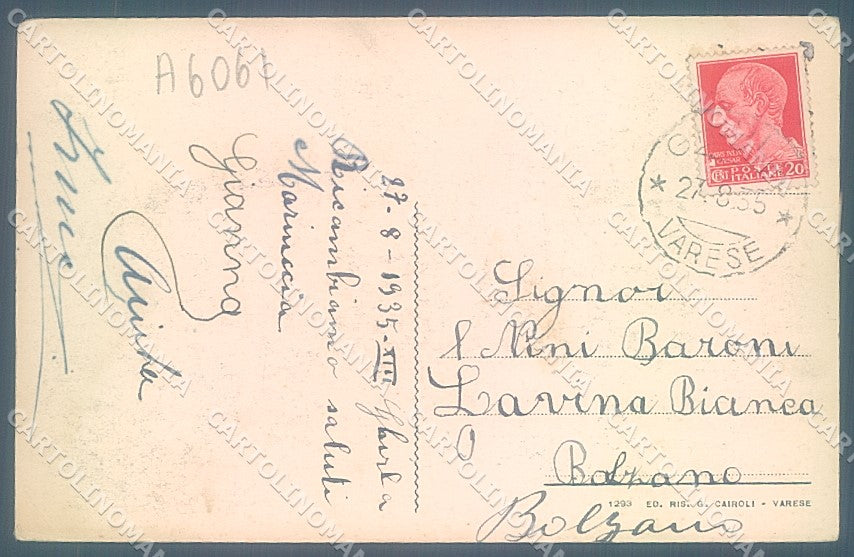 A6061
27-8-1935-XIII Ghirla
Ricambiamo saluti
Marinccia
Gianna
POSTE
ITALIANE 20
27.8.35
VARESE
Signor
Nini Baroni
Lavina Bianca
Bolzano
1293 ED. RIS. G. CAIROLI - VARESE
Bolzano
CARTOLINOMANIA